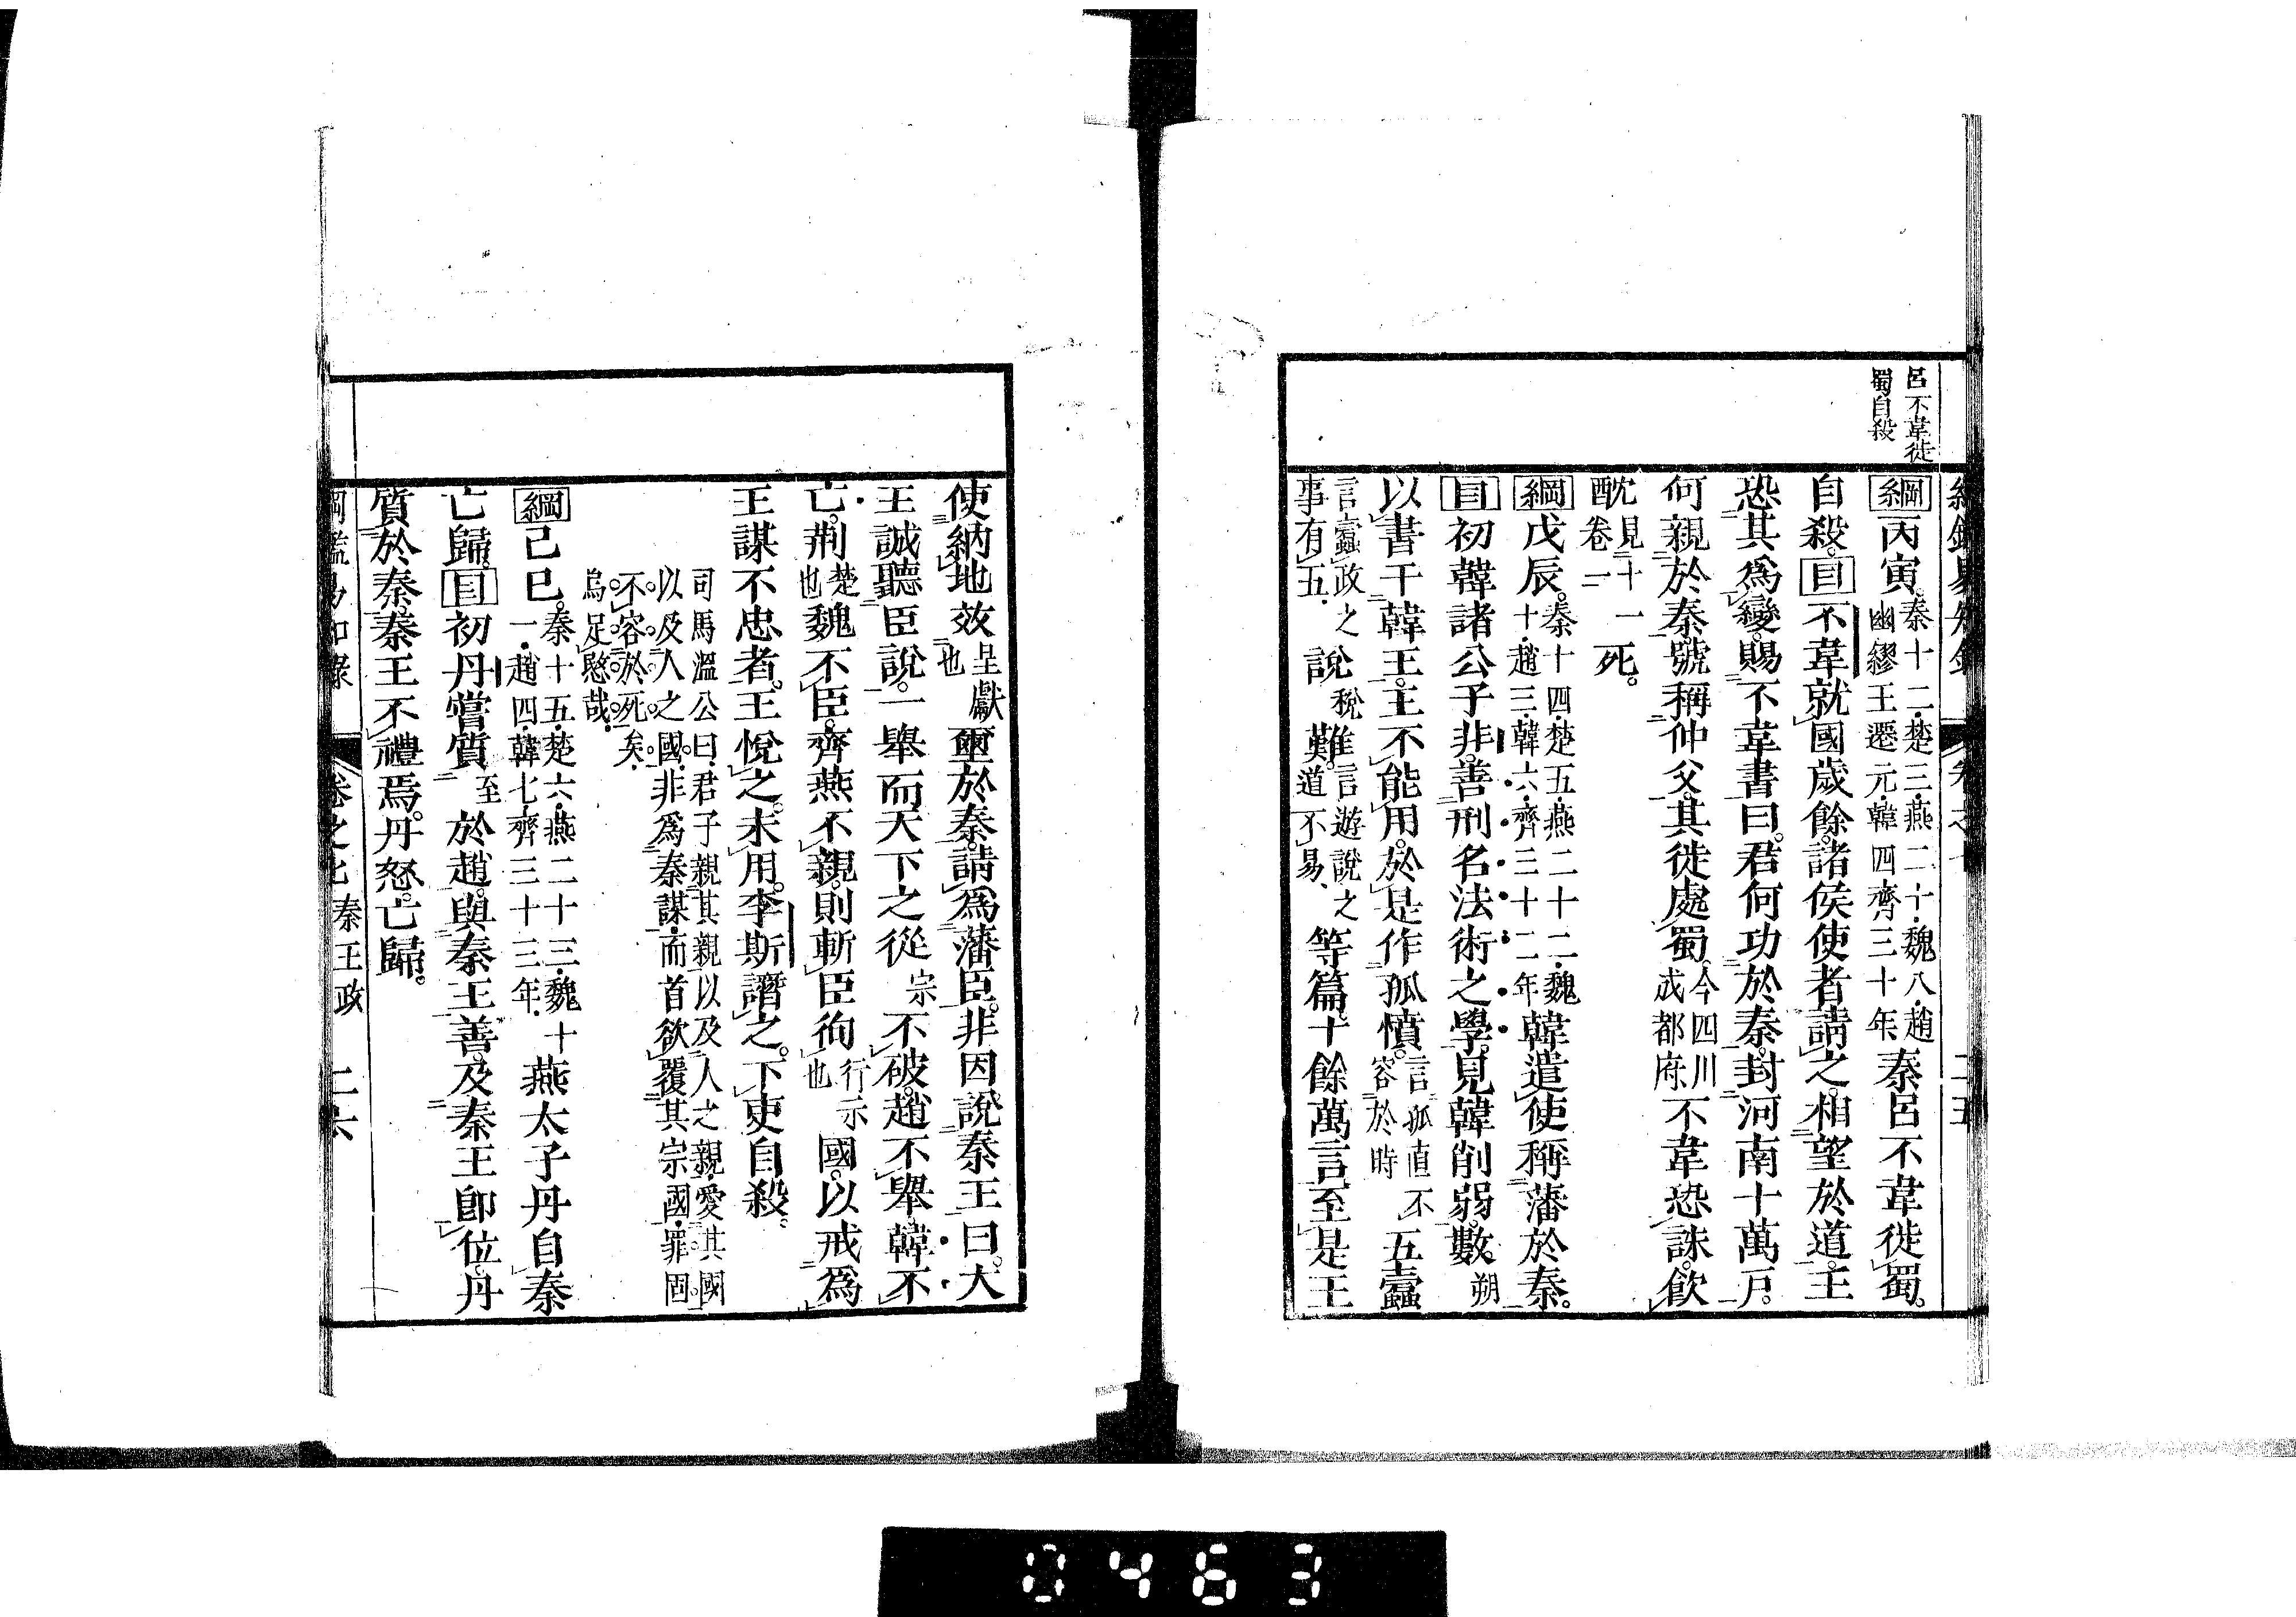 呂不韋徙
蜀自殺
綱丙寅。秦十二.楚三.燕二十.魏八.趙幽繆王遷元.韓四齊三十年.秦呂不韋徙蜀。
自殺。目不韋就國歲餘。諸侯使者請之。相望於道。王
恐其爲變。賜不韋書曰。君何功於秦。封河南十萬戶。
何親於秦。號稱仲父。其徙處蜀。今四川成都府.不韋恐誅。飮
酖見十一卷二死。
綱戊辰。秦十四.楚五.燕二十二.魏十.趙三.韓六.齊三十二年韓遣使稱藩於秦。
目初韓諸公子非。善刑名法術之學。見韓削弱。數朔
以書干韓王。王不能用。於是作孤憤。言孤直不容於時五蠹
言蠹政之事有五.說稅難。難言遊說之道不易.等篇。十餘萬言至是王
使納地效呈獻也璽於秦。請爲藩臣。非因說秦王曰。大
王誠聽臣說。一舉而天下之從宗不破。趙不舉。韓不
亡。荆楚也魏不臣。齊燕不親。則斬臣徇行示也國。以戒爲
王謀不忠者。王悅之。未用。李斯譖之。下吏自殺。
司馬溫公曰.君子親其親.以及人之親.愛其國.
以及人之國.非爲秦謀.而首欲覆其宗國.罪固
不容於死矣.
烏足愍哉.
綱己巳。秦十五.楚六.燕二十三.魏十一.趙四.韓七.齊三十三年.燕太子丹自秦
亡歸。目初丹嘗質至於趙。與秦王善。及秦王卽位。丹
質於秦。秦王不禮焉。丹怒。亡歸。
綱鑑易知錄 卷之七 秦王政 二六
0463